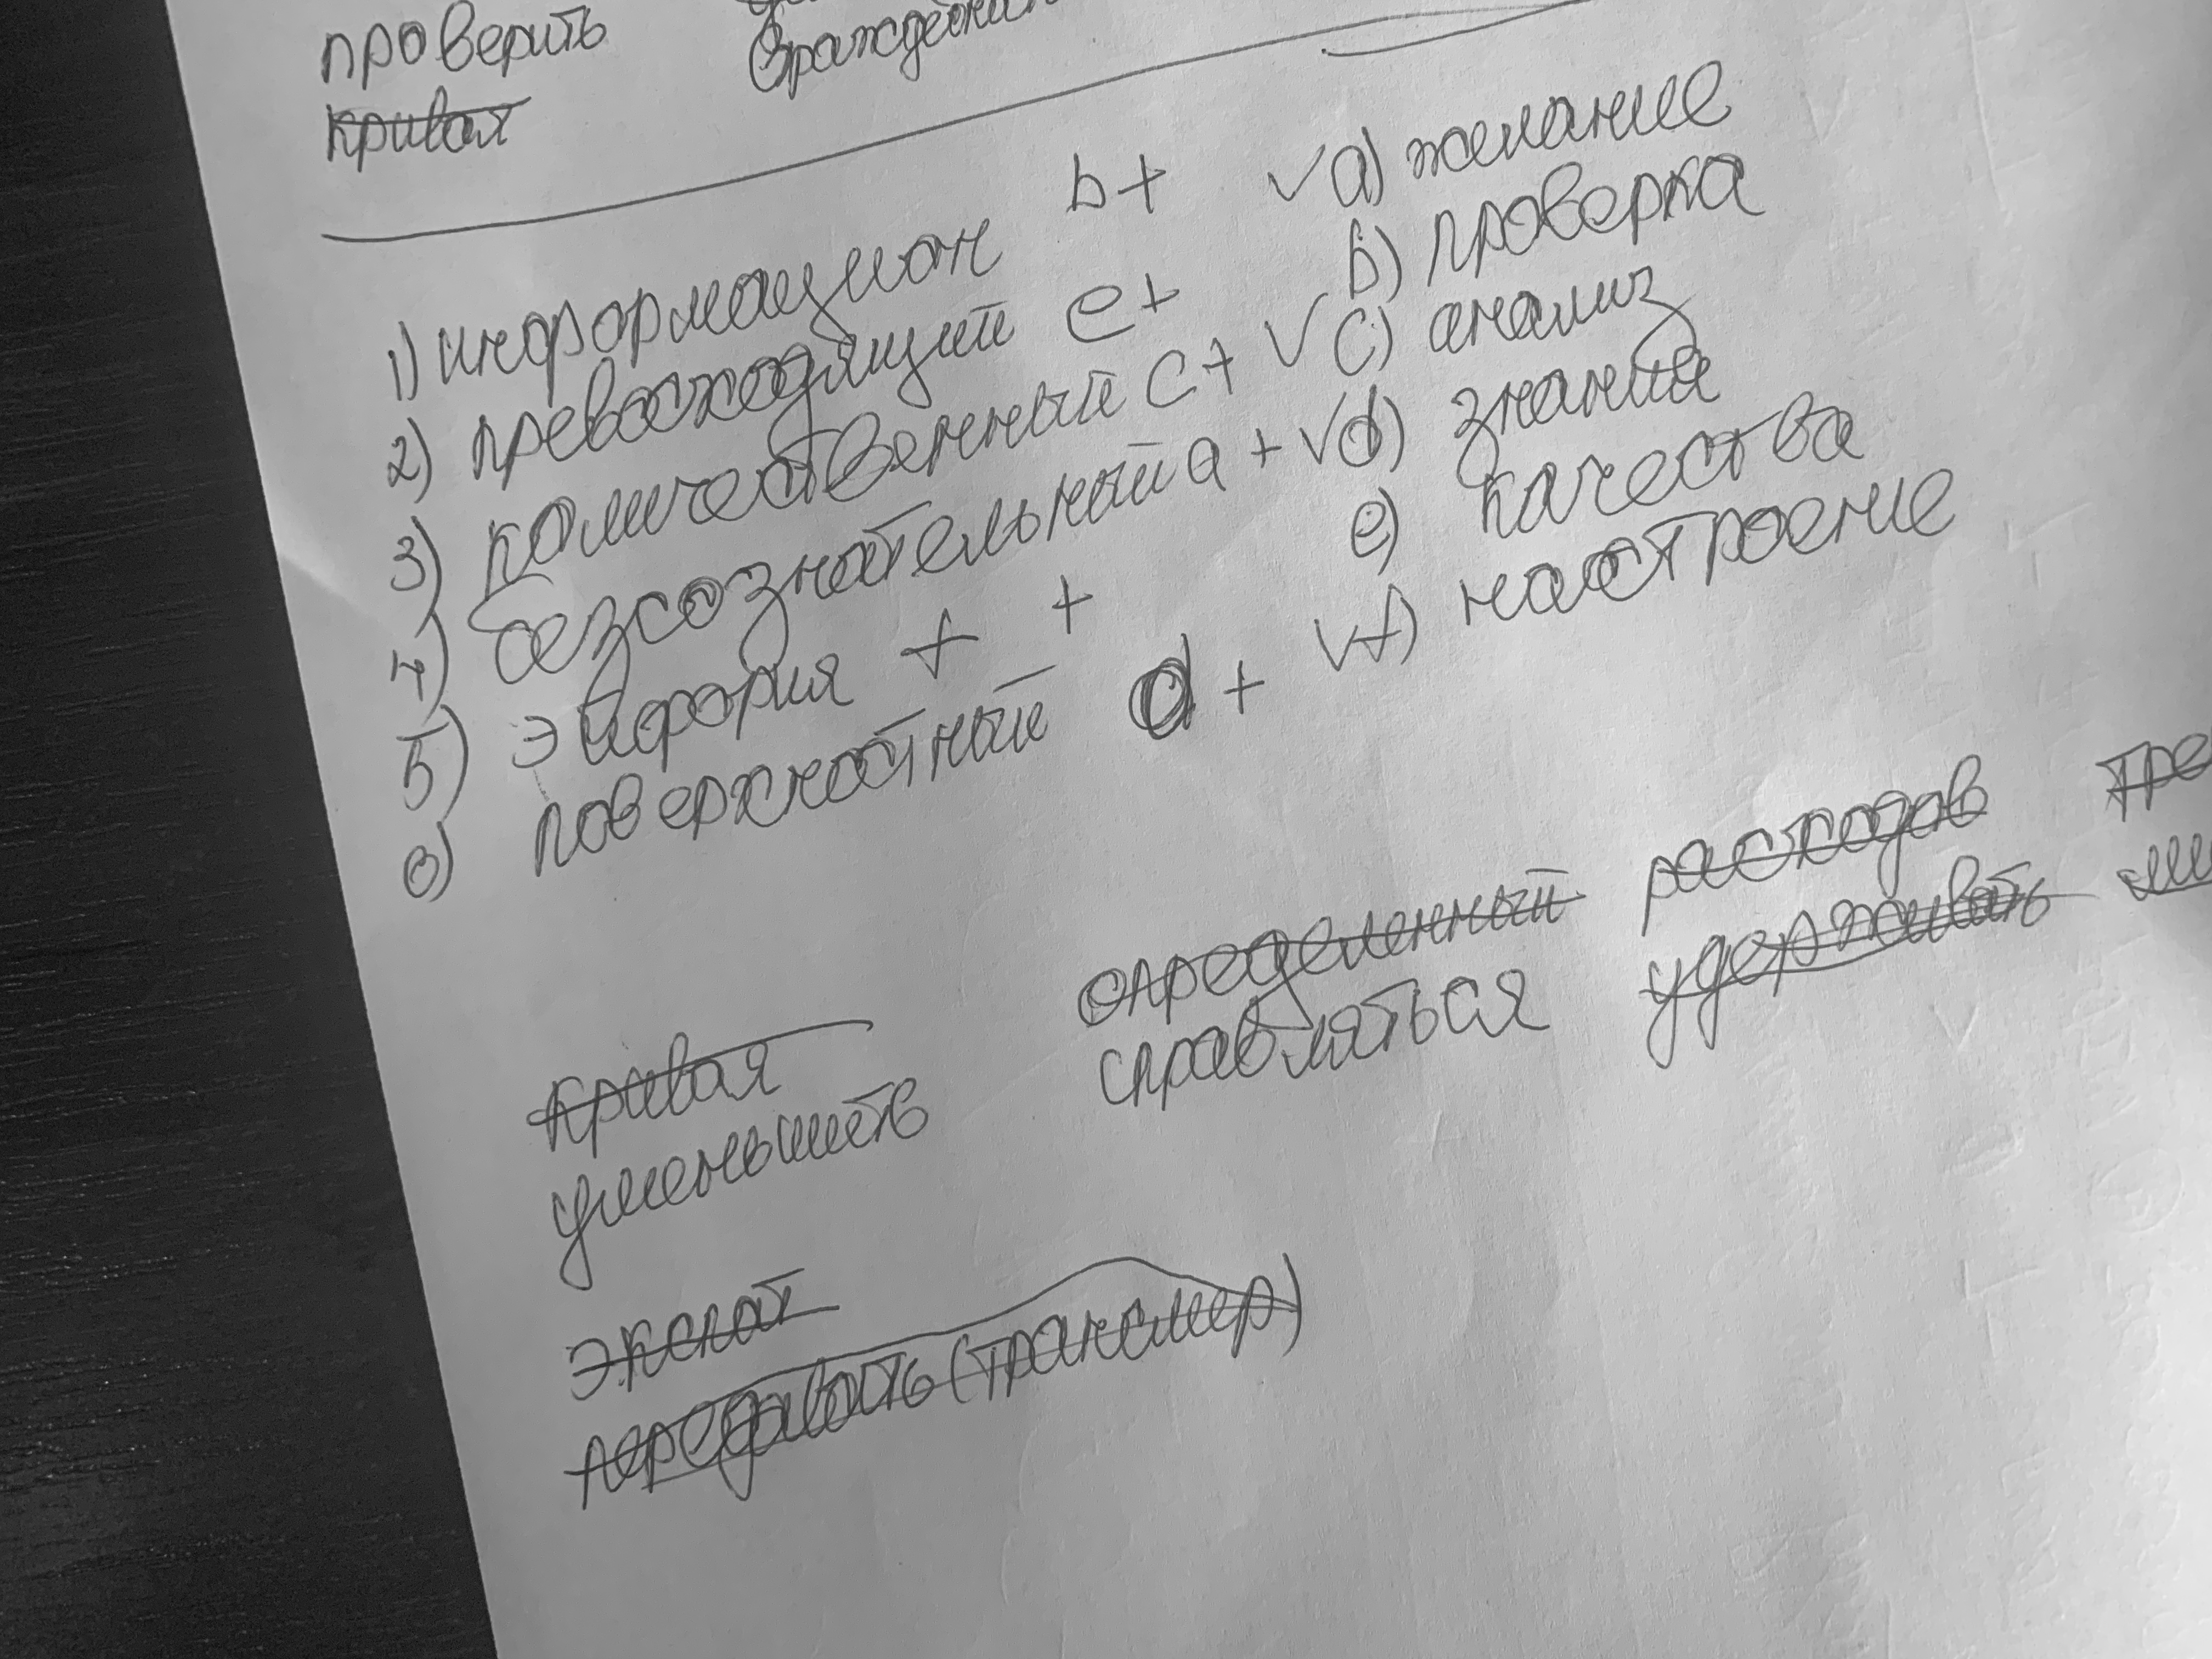 проверить
враждебн
кривая
1) информацион b+ ✓a) желание
2) превосходящий e+ b) проверка
3) количественный c+ ✓c) анализ
4) безсознательный a+ ✓d) знания
5) эйфория f + e) качества
6) поверхностный d+ ✓f) настроение
кривая определенный расходов тре
уменьшить справляться удерживать
экспат
передавать (трансмер)